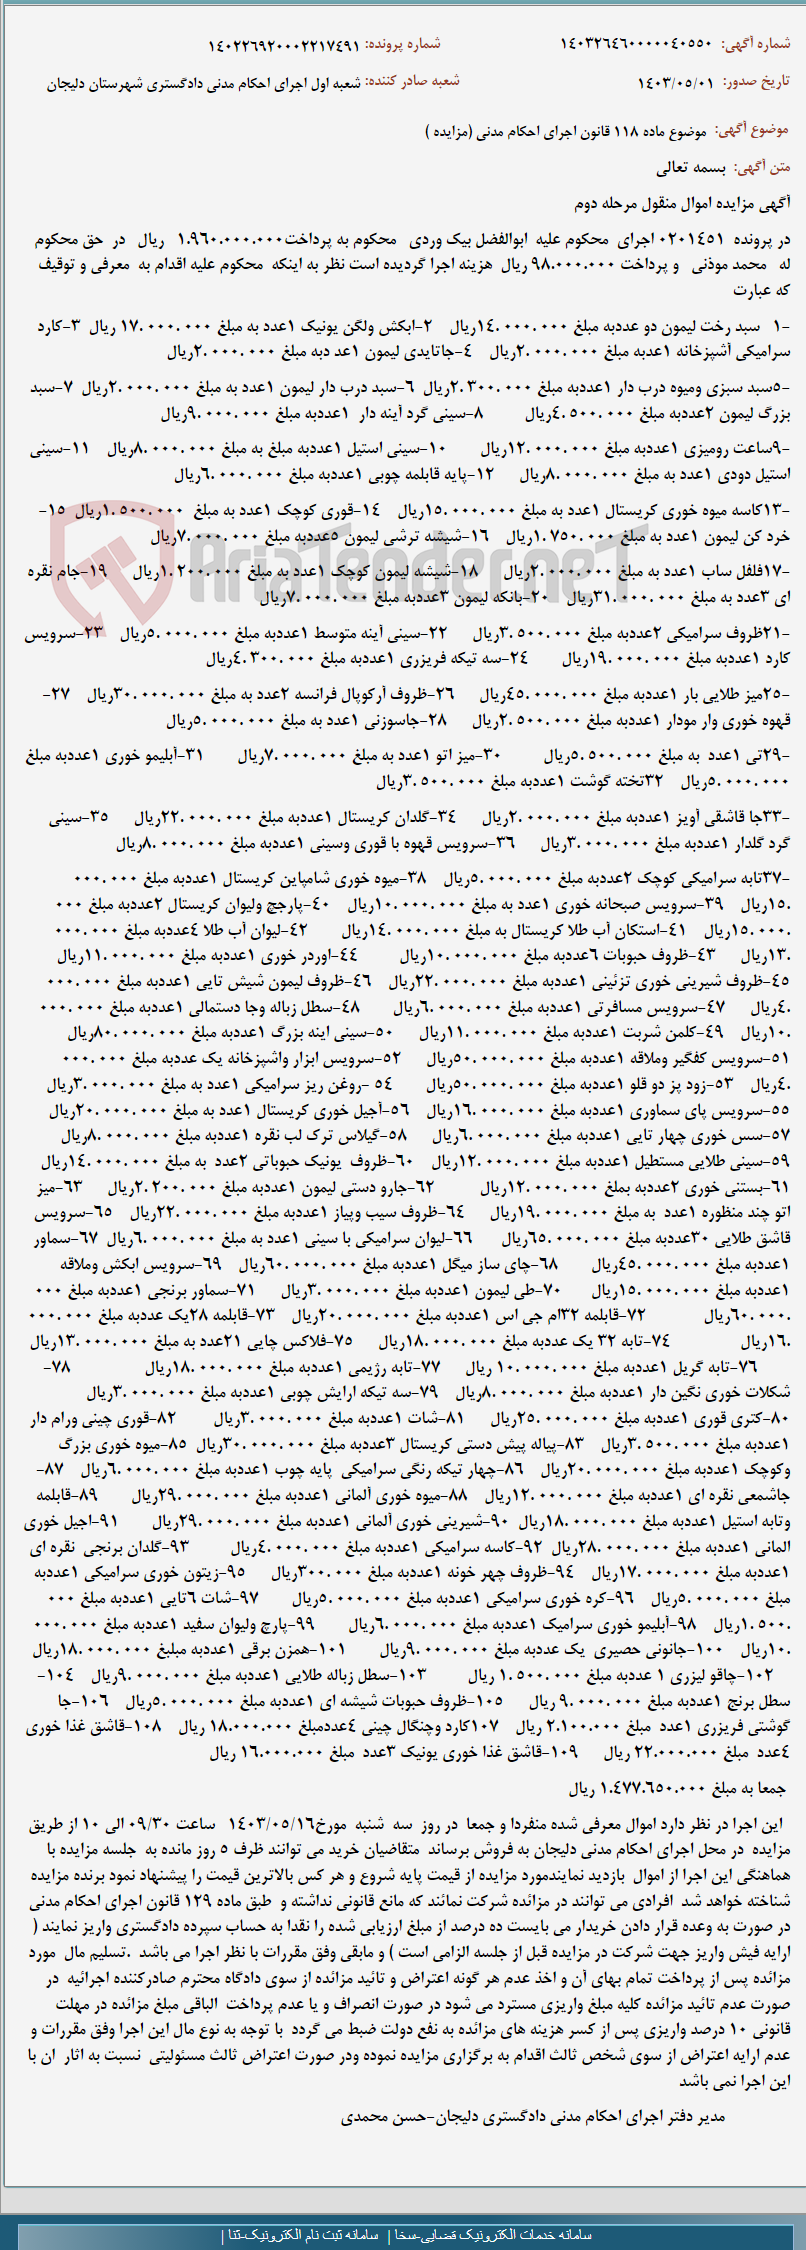 شماره آگهی: ۱۴۰۳۲۶۴۶۰۰۰۰۰۴۰۵۵۰ شماره پرونده: ۱۴۰۲۲۶۹۲۰۰۰۲۲۱۷۴۹۱
تاریخ صدور: ۱۴۰۳/۰۵/۰۱ شعبه صادر کننده: شعبه اول اجرای احکام مدنی دادگستری شهرستان دلیجان
موضوع آگهی: موضوع ماده ۱۱۸ قانون اجرای احکام مدنی (مزایده )
متن آگهی: بسمه تعالی
آگهی مزایده اموال منقول مرحله دوم
در پرونده ۰۲۰۱۴۵۱ اجرای محکوم علیه ابوالفضل بیک وردی محکوم به پرداخت۱.۹۶۰.۰۰۰.۰۰۰ ریال در حق محکوم
له محمد موذنی و پرداخت ۹۸.۰۰۰.۰۰۰ ریال هزینه اجرا گردیده است نظر به اینکه محکوم علیه اقدام به معرفی و توقیف
که عبارت
-۱ سبد رخت لیمون دو عددبه مبلغ ۱۴.۰۰۰.۰۰۰ریال ۲-ابکش ولگن یونیک ۱عدد به مبلغ ۱۷.۰۰۰.۰۰۰ ریال ۳-کارد
سرامیکی آشپزخانه ۱عدبه مبلغ ۲.۰۰۰.۰۰۰ریال ۴-جاتایدی لیمون ۱عد دبه مبلغ ۲.۰۰۰.۰۰۰ریال
-۵سبد سبزی ومیوه درب دار ۱عددبه مبلغ ۲.۳۰۰.۰۰۰ریال ۶-سبد درب دار لیمون ۱عدد به مبلغ ۲.۰۰۰.۰۰۰ریال ۷-سبد
بزرگ لیمون ۲عددبه مبلغ ۴.۵۰۰.۰۰۰ریال ۸-سینی گرد آینه دار ۱عددبه مبلغ ۹.۰۰۰.۰۰۰ریال
-۹ساعت رومیزی ۱عددبه مبلغ ۱۲.۰۰۰.۰۰۰ریال ۱۰-سینی استیل ۱عددبه مبلغ به مبلغ ۸.۰۰۰.۰۰۰ریال ۱۱-سینی
استیل دودی ۱عدد به مبلغ ۸.۰۰۰.۰۰۰ریال ۱۲-پایه قابلمه چوبی ۱عددبه مبلغ ۶.۰۰۰.۰۰۰ریال
-۱۳کاسه میوه خوری کریستال ۱عدد به مبلغ ۱۵.۰۰۰.۰۰۰ریال ۱۴-قوری کوچک ۱عدد به مبلغ ۱.۵۰۰.۰۰۰ریال ۱۵-
خرد کن لیمون ۱عدد به مبلغ ۱.۷۵۰.۰۰۰ریال ۱۶-شیشه ترشی لیمون ۵عددبه مبلغ ۷.۰۰۰.۰۰۰ریال
-۱۷فلفل ساب ۱عدد به مبلغ ۲.۰۰۰.۰۰۰ریال ۱۸-شیشه لیمون کوچک ۱عدد به مبلغ ۱.۲۰۰.۰۰۰ریال ۱۹-جام نقره
ای ۳عدد به مبلغ ۳۱.۰۰۰.۰۰۰ریال ۲۰-بانکه لیمون ۳عددبه مبلغ ۷.۰۰۰.۰۰۰ریال
-۲۱ظروف سرامیکی ۲عددبه مبلغ ۳.۵۰۰.۰۰۰ریال ۲۲-سینی آینه متوسط ۱عددبه مبلغ ۵.۰۰۰.۰۰۰ریال ۲۳-سرویس
کارد ۱عددبه مبلغ ۱۹.۰۰۰.۰۰۰ریال ۲۴-سه تیکه فریزری ۱عددبه مبلغ ۴.۳۰۰.۰۰۰ریال
-۲۵میز طلایی بار ۱عددبه مبلغ ۴۵.۰۰۰.۰۰۰ریال ۲۶-ظروف آرکوپال فرانسه ۲عدد به مبلغ ۳۰.۰۰۰.۰۰۰ریال ۲۷-
قهوه خوری وار مودار ۱عددبه مبلغ ۲.۵۰۰.۰۰۰ریال ۲۸-جاسوزنی ۱عدد به مبلغ ۵.۰۰۰.۰۰۰ریال
-۲۹تی ۱عدد به مبلغ ۵.۵۰۰.۰۰۰ریال ۳۰-میز اتو ۱عدد به مبلغ ۷.۰۰۰.۰۰۰ریال ۳۱-آبلیمو خوری ۱عددبه مبلغ
۵.۰۰۰.۰۰۰ریال ۳۲تخته گوشت ۱عددبه مبلغ ۳.۵۰۰.۰۰۰ریال
-۳۳جا قاشقی آویز ۱عددبه مبلغ ۲.۰۰۰.۰۰۰ریال ۳۴-گلدان کریستال ۱عددبه مبلغ ۲۲.۰۰۰.۰۰۰ریال ۳۵-سینی
گرد گلدار ۱عددبه مبلغ ۳.۰۰۰.۰۰۰ریال ۳۶-سرویس قهوه با قوری وسینی ۱عددبه مبلغ ۸.۰۰۰.۰۰۰ریال
-۳۷تابه سرامیکی کوچک ۲عددبه مبلغ ۵.۰۰۰.۰۰۰ریال ۳۸-میوه خوری شامپاین کریستال ۱عددبه مبلغ ۰۰۰.۰۰۰
.۱۵ریال ۳۹-سرویس صبحانه خوری ۱عدد به مبلغ ۱۰.۰۰۰.۰۰۰ریال ۴۰-پارچچ ولیوان کریستال ۲عددبه مبلغ ۰۰۰
.۱۵.۰۰۰ریال ۴۱-استکان آب طلا کریستال به مبلغ ۱۴.۰۰۰.۰۰۰ریال ۴۲-لیوان آب طلا ۴عددبه مبلغ ۰۰۰.۰۰۰
.۱۳ریال ۴۳-ظروف حبوبات ۶عددبه مبلغ ۱۰.۰۰۰.۰۰۰ریال ۴۴-اوردر خوری ۱عددبه مبلغ ۱۱.۰۰۰.۰۰۰ریال
۴۵-ظروف شیرینی خوری تزئینی ۱عددبه مبلغ ۲۲.۰۰۰.۰۰۰ریال ۴۶-ظروف لیمون شیش تایی ۱عددبه مبلغ ۰۰۰.۰۰۰
.۴ریال ۴۷-سرویس مسافرتی ۱عددبه مبلغ ۶.۰۰۰.۰۰۰ریال ۴۸-سطل زباله وجا دستمالی ۱عددبه مبلغ ۰۰۰.۰۰۰
.۱۰ریال ۴۹-کلمن شربت ۱عددبه مبلغ ۱۱.۰۰۰.۰۰۰ریال ۵۰-سینی اینه بزرگ ۱عددبه مبلغ ۸۰.۰۰۰.۰۰۰ریال
۵۱-سرویس کفگیر وملاقه ۱عددبه مبلغ ۵۰.۰۰۰.۰۰۰ریال ۵۲-سرویس ابزار واشپزخانه یک عددبه مبلغ ۰۰۰.۰۰۰
.۴ریال ۵۳-زود پز دو قلو ۱عددبه مبلغ ۵۰.۰۰۰.۰۰۰ریال ۵۴ -روغن ریز سرامیکی ۱عدد به مبلغ ۳.۰۰۰.۰۰۰ریال
۵۵-سرویس پای سماوری ۱عددبه مبلغ ۱۶.۰۰۰.۰۰۰ریال ۵۶-آجیل خوری کریستال ۱عدد به مبلغ ۲۰.۰۰۰.۰۰۰ریال
۵۷-سس خوری چهار تایی ۱عددبه مبلغ ۶.۰۰۰.۰۰۰ریال ۵۸-گیلاس ترک لب نقره ۱عددبه مبلغ ۸.۰۰۰.۰۰۰ریال
۵۹-سینی طلایی مستطیل ۱عددبه مبلغ ۱۲.۰۰۰.۰۰۰ریال ۶۰-ظروف یونیک حبوباتی ۲عدد به مبلغ ۱۴.۰۰۰.۰۰۰ریال
۶۱-بستنی خوری ۲عددبه بملغ ۱۲.۰۰۰.۰۰۰ریال ۶۲-جارو دستی لیمون ۱عددبه مبلغ ۲.۲۰۰.۰۰۰ریال ۶۳-میز
اتو چند منظوره ۱عدد به مبلغ ۱۹.۰۰۰.۰۰۰ریال ۶۴-ظروف سیب وپیاز ۱عددبه مبلغ ۲۲.۰۰۰.۰۰۰ریال ۶۵-سرویس
قاشق طلایی ۳۰عددبه مبلغ ۶۵.۰۰۰.۰۰۰ریال ۶۶-لیوان سرامیکی با سینی ۱عدد به مبلغ ۶.۰۰۰.۰۰۰ریال ۶۷-سماور
۱عددبه مبلغ ۴۵.۰۰۰.۰۰۰ریال ۶۸-چای ساز میگل ۱عددبه مبلغ ۶۰.۰۰۰.۰۰۰ریال ۶۹-سرویس ابکش وملاقه
۱عددبه مبلغ ۱۵.۰۰۰.۰۰۰ریال ۷۰-طی لیمون ۱عددبه مبلغ ۳.۰۰۰.۰۰۰ریال ۷۱-سماور برنجی ۱عددبه مبلغ ۰۰۰
.۶۰.۰۰۰ریال ۷۲-قابلمه ۳۲ام جی اس ۱عددبه مبلغ ۲۰.۰۰۰.۰۰۰ریال ۷۳-قابلمه ۲۸یک عددبه مبلغ ۰۰۰.۰۰۰
.۱۶ریال ۷۴-تابه ۳۲ یک عددبه مبلغ ۱۸.۰۰۰.۰۰۰ریال ۷۵-فلاکس چایی ۲۱عدد به مبلغ ۱۳.۰۰۰.۰۰۰ریال
۷۶-تابه گریل ۱عددبه مبلغ ۱۰.۰۰۰.۰۰۰ ریال ۷۷-تابه رژیمی ۱عددبه مبلغ ۱۸.۰۰۰.۰۰۰ریال ۷۸-
شکلات خوری نگین دار ۱عددبه مبلغ ۸.۰۰۰.۰۰۰ریال ۷۹-سه تیکه ارایش چوبی ۱عددبه مبلغ ۳.۰۰۰.۰۰۰ریال
۸۰-کتری قوری ۱عددبه مبلغ ۲۵.۰۰۰.۰۰۰ریال ۸۱-شات ۱عددبه مبلغ ۳.۰۰۰.۰۰۰ریال ۸۲-قوری چینی ورام دار
۱عددبه مبلغ ۳.۵۰۰.۰۰۰ریال ۸۳-پیاله پیش دستی کریستال ۳عددبه مبلغ ۳۰.۰۰۰.۰۰۰ریال ۸۵-میوه خوری بزرگ
وکوچک ۱عددبه مبلغ ۲۰.۰۰۰.۰۰۰ریال ۸۶-چهار تیکه رنگی سرامیکی پایه چوب ۱عددبه مبلغ ۶.۰۰۰.۰۰۰ریال ۸۷-
جاشمعی نقره ای ۱عددبه مبلغ ۱۲.۰۰۰.۰۰۰ریال ۸۸-میوه خوری آلمانی ۱عددبه مبلغ ۲۹.۰۰۰.۰۰۰ریال ۸۹-قابلمه
وتابه استیل ۱عددبه مبلغ ۱۸.۰۰۰.۰۰۰ریال ۹۰-شیرینی خوری آلمانی ۱عددبه مبلغ ۲۹.۰۰۰.۰۰۰ریال ۹۱-اجیل خوری
المانی ۱عددبه مبلغ ۲۸.۰۰۰.۰۰۰ریال ۹۲-کاسه سرامیکی ۱عددبه مبلغ ۴.۰۰۰.۰۰۰ریال ۹۳-گلدان برنجی نقره ای
۱عددبه مبلغ ۱۷.۰۰۰.۰۰۰ریال ۹۴-ظروف چهر خونه ۱عددبه مبلغ ۳۰۰.۰۰۰ریال ۹۵-زیتون خوری سرامیکی ۱عددبه
مبلغ ۵.۰۰۰.۰۰۰ریال ۹۶-کره خوری سرامیکی ۱عددبه مبلغ ۵.۰۰۰.۰۰۰ریال ۹۷-شات ۶تایی ۱عددبه مبلغ ۰۰۰
.۱.۵۰۰ریال ۹۸-آبلیمو خوری سرامیک ۱عددبه مبلغ ۶.۰۰۰.۰۰۰ریال ۹۹-پارچ ولیوان سفید ۱عددبه مبلغ ۰۰۰.۰۰۰
.۱۰ریال ۱۰۰-جانونی حصیری یک عددبه مبلغ ۹.۰۰۰.۰۰۰ریال ۱۰۱-همزن برقی ۱عددبه مبلبغ ۱۸.۰۰۰.۰۰۰ریال
۱۰۲-چاقو لیزری ۱ عددبه مبلغ ۱.۵۰۰.۰۰۰ ریال ۱۰۳-سطل زباله طلایی ۱عددبه مبلغ ۹.۰۰۰.۰۰۰ریال ۱۰۴-
سطل برنج ۱عددبه مبلغ ۹.۰۰۰.۰۰۰ ریال ۱۰۵-ظروف حبوبات شیشه ای ۱عددبه مبلغ ۵.۰۰۰.۰۰۰ریال ۱۰۶-جا
گوشتی فریزری ۱عدد مبلغ ۲.۱۰۰.۰۰۰ ریال ۱۰۷کارد وچنگال چینی ۴عددمبلغ ۱۸.۰۰۰.۰۰۰ ریال ۱۰۸-قاشق غذا خوری
۴عدد مبلغ ۲۲.۰۰۰.۰۰۰ ریال ۱۰۹-قاشق غذا خوری یونیک ۳عدد مبلغ ۱۶.۰۰۰.۰۰۰ ریال
جمعا به مبلغ ۱.۴۷۷.۶۵۰.۰۰۰ ریال
این اجرا در نظر دارد اموال معرفی شده منفردا و جمعا در روز سه شنبه مورخ۱۴۰۳/۰۵/۱۶ ساعت ۰۹/۳۰ الی ۱۰ از طریق
مزایده در محل اجرای احکام مدنی دلیجان به فروش برساند متقاضیان خرید می توانند ظرف ۵ روز مانده به جلسه مزایده با
هماهنگی این اجرا از اموال بازدید نمایندمورد مزایده از قیمت پایه شروع و هر کس بالاترین قیمت را پیشنهاد نمود برنده مزایده
شناخته خواهد شد افرادی می توانند در مزائده شرکت نمائند که مانع قانونی نداشته و طبق ماده ۱۲۹ قانون اجرای احکام مدنی
در صورت به وعده قرار دادن خریدار می بایست ده درصد از مبلغ ارزیابی شده را نقدا به حساب سپرده دادگستری واریز نمایند (
ارایه فیش واریز جهت شرکت در مزایده قبل از جلسه الزامی است ) و مابقی وفق مقررات با نظر اجرا می باشد .تسلیم مال مورد
مزائده پس از پرداخت تمام بهای آن و اخذ عدم هر گونه اعتراض و تائید مزائده از سوی دادگاه محترم صادرکننده اجرائیه در
صورت عدم تائید مزائده کلیه مبلغ واریزی مسترد می شود در صورت انصراف و یا عدم پرداخت الباقی مبلغ مزائده در مهلت
قانونی ۱۰ درصد واریزی پس از کسر هزینه های مزائده به نفع دولت ضبط می گردد با توجه به نوع مال این اجرا وفق مقررات و
عدم ارایه اعتراض از سوی شخص ثالث اقدام به برگزاری مزایده نموده ودر صورت اعتراض ثالث مسئولیتی نسبت به اثار ان با
این اجرا نمی باشد
مدیر دفتر اجرای احکام مدنی دادگستری دلیجان-حسن محمدی
سامانه خدمات الکترونیک قضایی-سخا | سامانه ثبت نام الکترونیک-ثنا |
AriaTender.neT